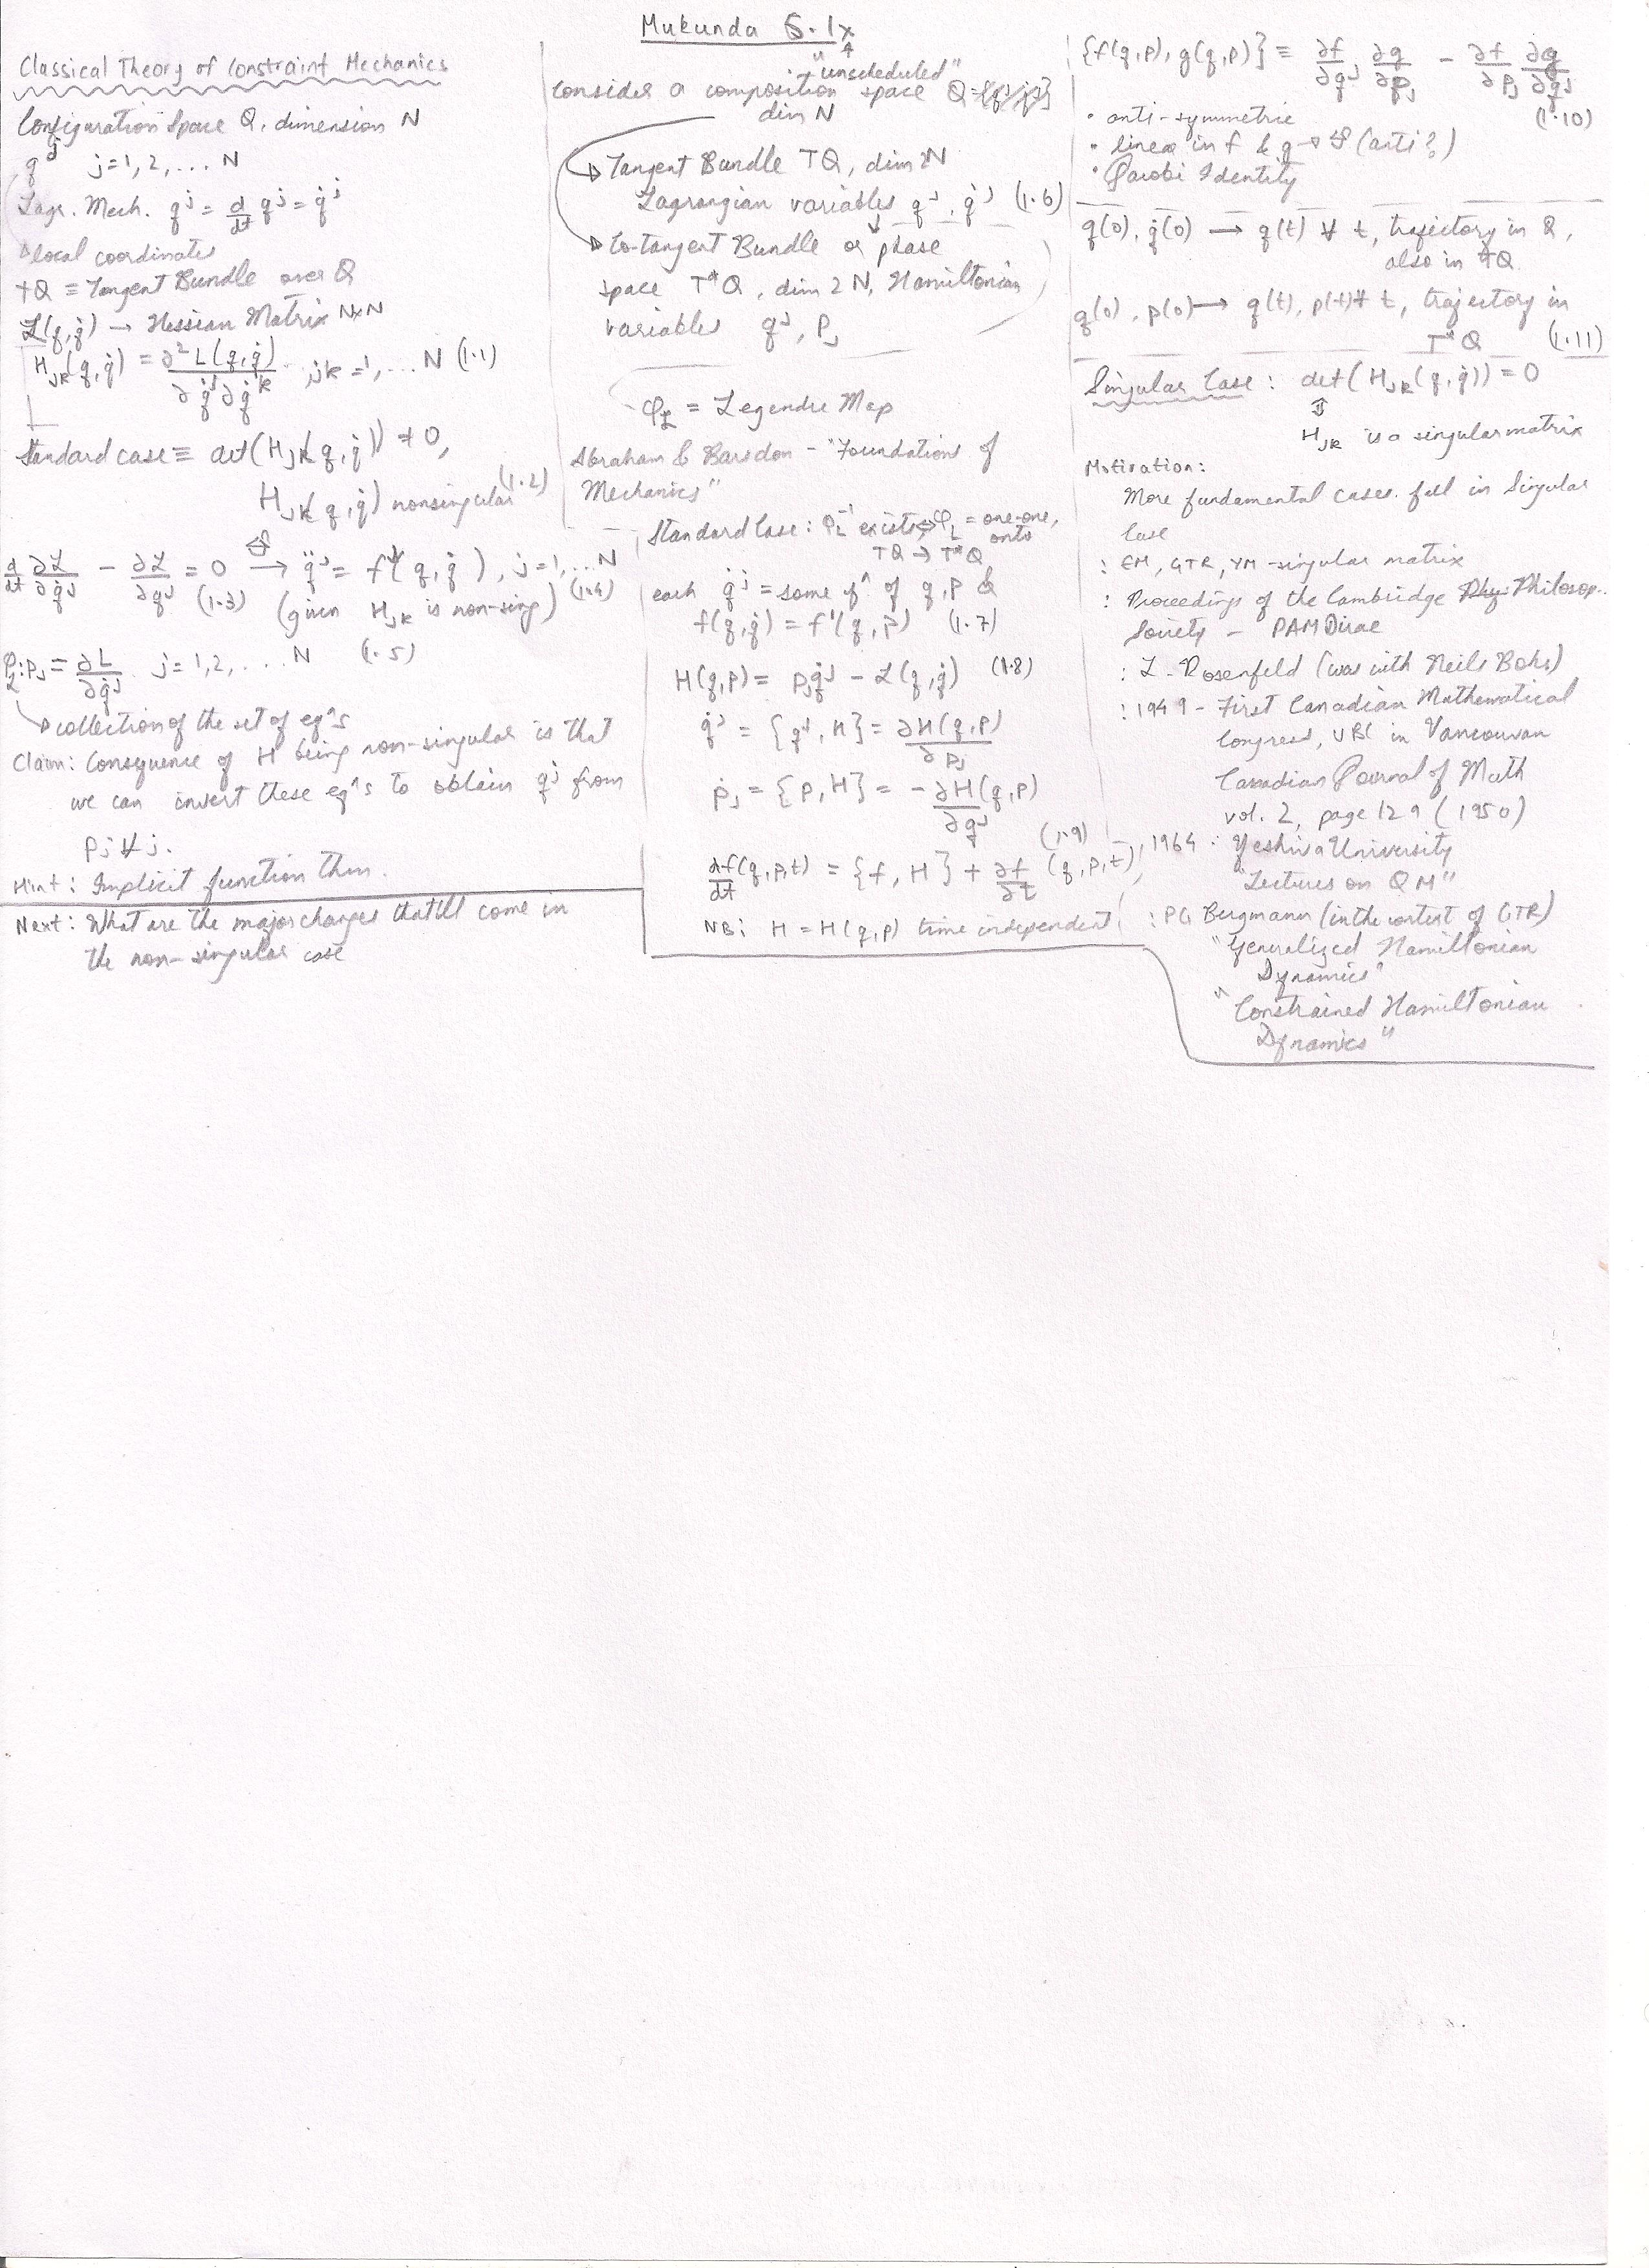 Mukunda 5.1x
"unscheduled"
Classical Theory of Constraint Mechanics
Configuration Space Q, dimension N
q^j j=1,2,... N
Lagr. Mech. q^j = d/dt q^j = q̇^j
local coordinates
TQ = Tangent Bundle over Q
L(q,q̇) → Hessian Matrix N×N
H_jk(q,q̇) = ∂²L(q,q̇)/∂q̇^j∂q̇^k, jk=1,...N (1.1)
Standard case ≡ det(H_jk(q,q̇)) ≠ 0,
H_jk(q,q̇) nonsingular (1.2)
d/dt ∂L/∂q̇^j − ∂L/∂q^j = 0 ⇔ → q̈^j = f^j(q,q̇), j=1,...N
(1.3) (given H_jk is non-sing) (1.4)
φ_L: p_j = ∂L/∂q̇^j j=1,2,...N (1.5)
collection of the set of eqⁿs
Claim: Consequence of H being non-singular is that
we can invert these eqⁿs to obtain q̇^j from
p_j ∀ j.
Hint: Implicit function thm.
Next: What are the major changes that'll come in
the non-singular case
Consider a composition space Q
dim N
Tangent Bundle TQ, dim 2N
Lagrangian variables q^j, q̇^j (1.6)
Co-tangent Bundle or phase
space T*Q, dim 2N, Hamiltonian
variables q^j, p_j
φ_L = Legendre Map
Abraham & Barsdon - "Foundations of
Mechanics"
Standard Case: φ_L⁻¹ exists ⇔ φ_L = one-one, onto
TQ → T*Q
each q̇^j = some fⁿ of q,p &
f(q,q̇) = f'(q,p) (1.7)
H(q,p) = p_j q̇^j − L(q,q̇) (1.8)
q̇^j = {q^j, H} = ∂H(q,p)/∂p_j
ṗ_j = {p, H} = −∂H(q,p)/∂q^j
(1.9)
df/dt(q,p,t) = {f, H} + ∂f/∂t (q,p,t)
NB: H = H(q,p) time independent
{f(q,p), g(q,p)} = ∂f/∂q^j ∂g/∂p_j − ∂f/∂p_j ∂g/∂q^j
(1.10)
• anti-symmetric
• linear in f & g → (anti?)
• Jacobi Identity
q(0), q̇(0) → q(t) ∀ t, trajectory in Q,
also in TQ
q(0), p(0) → q(t), p(t) ∀ t, trajectory in
T*Q (1.11)
Singular Case: det(H_jk(q,q̇)) = 0
⇕
H_jk is a singular matrix
Motivation:
More fundamental cases fall in Singular
Case
: EM, GTR, YM - singular matrix
: Proceedings of the Cambridge Philosop..
Society - PAM Dirac
: L. Rosenfeld (was with Neils Bohr)
: 1949 - First Canadian Mathematical
Congress, UBC in Vancouvan
Canadian Journal of Math
vol. 2, page 129 (1950)
1964 : Yeshiva University
"Lectures on QM"
: PG Bergmann (in the context of GTR)
"Generalized Hamiltonian
Dynamics"
"Constrained Hamiltonian
Dynamics"